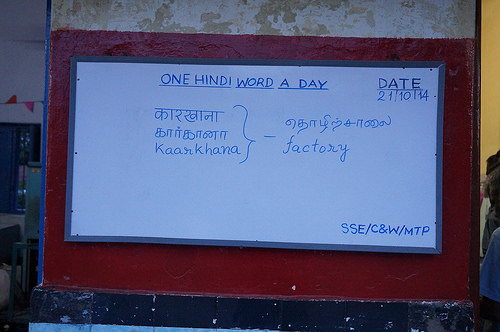 ONE HINDI WORD A DAY
DATE
21/10/14
कारखाना
கார்கானா
Kaarkhana
தொழிற்சாலை
factory
SSE/C&W/MTP